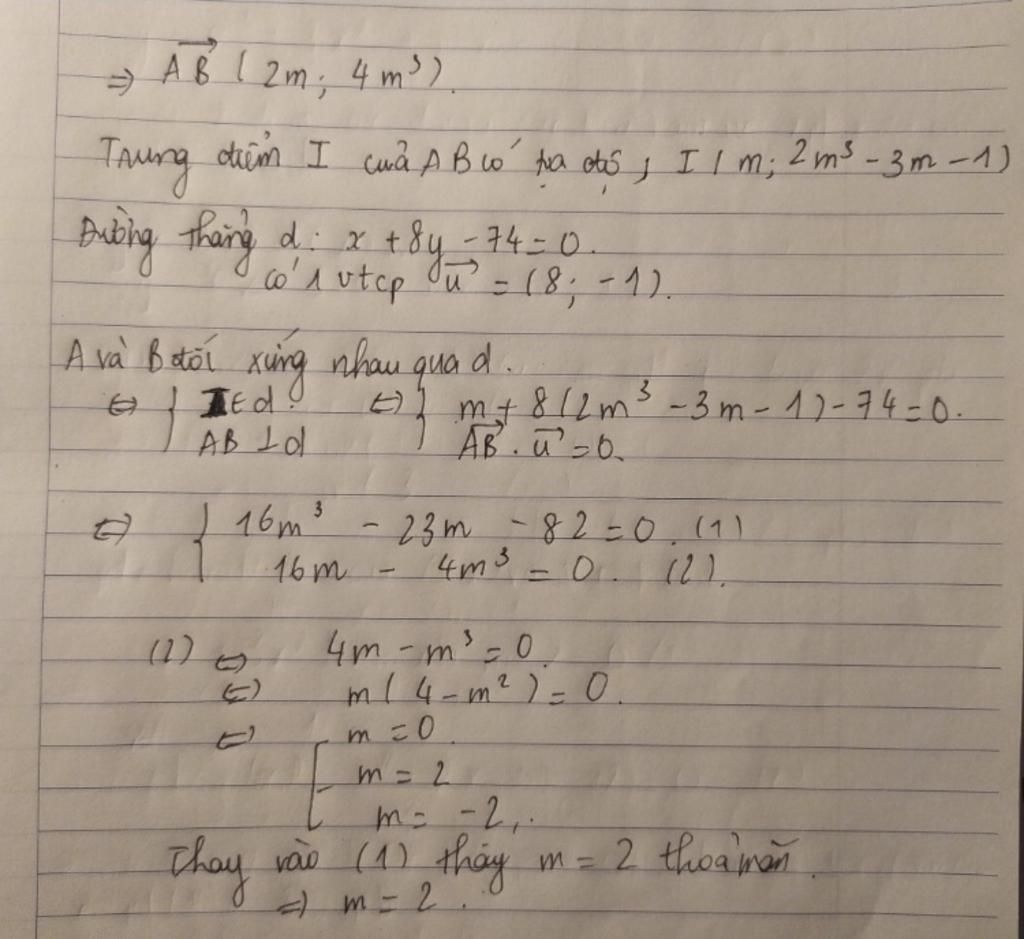 ⇒ AB→ (2m; 4m³).
Trung điểm I của AB có tọa độ, I(m; 2m³ - 3m - 1)
Đường thẳng d: x + 8y - 74 = 0.
có 1 vtcp u→ = (8; -1).
A và B đối xứng nhau qua d.
⇔ { I ∈ d. ⇔ { m + 8(2m³ - 3m - 1) - 74 = 0.
AB ⊥ d AB→ . u→ = 0.
⇔ { 16m³ - 23m - 82 = 0. (1)
16m - 4m³ = 0. (2).
(2) ⇔ 4m - m³ = 0.
⇔ m(4 - m²) = 0.
⇔ [ m = 0.
m = 2
m = -2,.
Thay vào (1) thấy m = 2 thoả mãn.
⇒ m = 2.